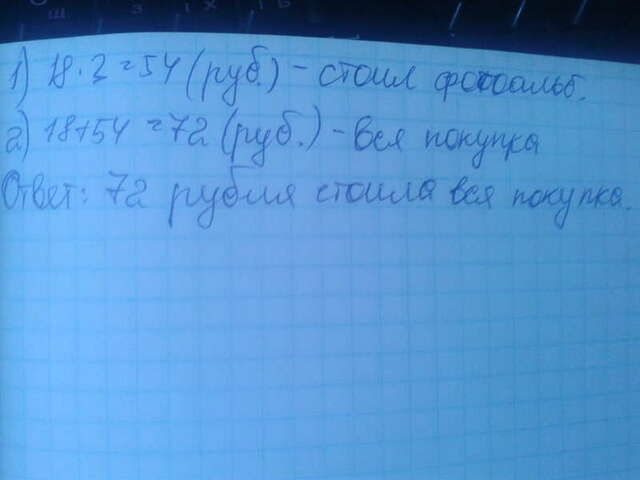 1) 18·3=54 (руб.) – стоил фотоальб.
2) 18+54=72 (руб.) – вся покупка
Ответ: 72 рубля стоила вся покупка.